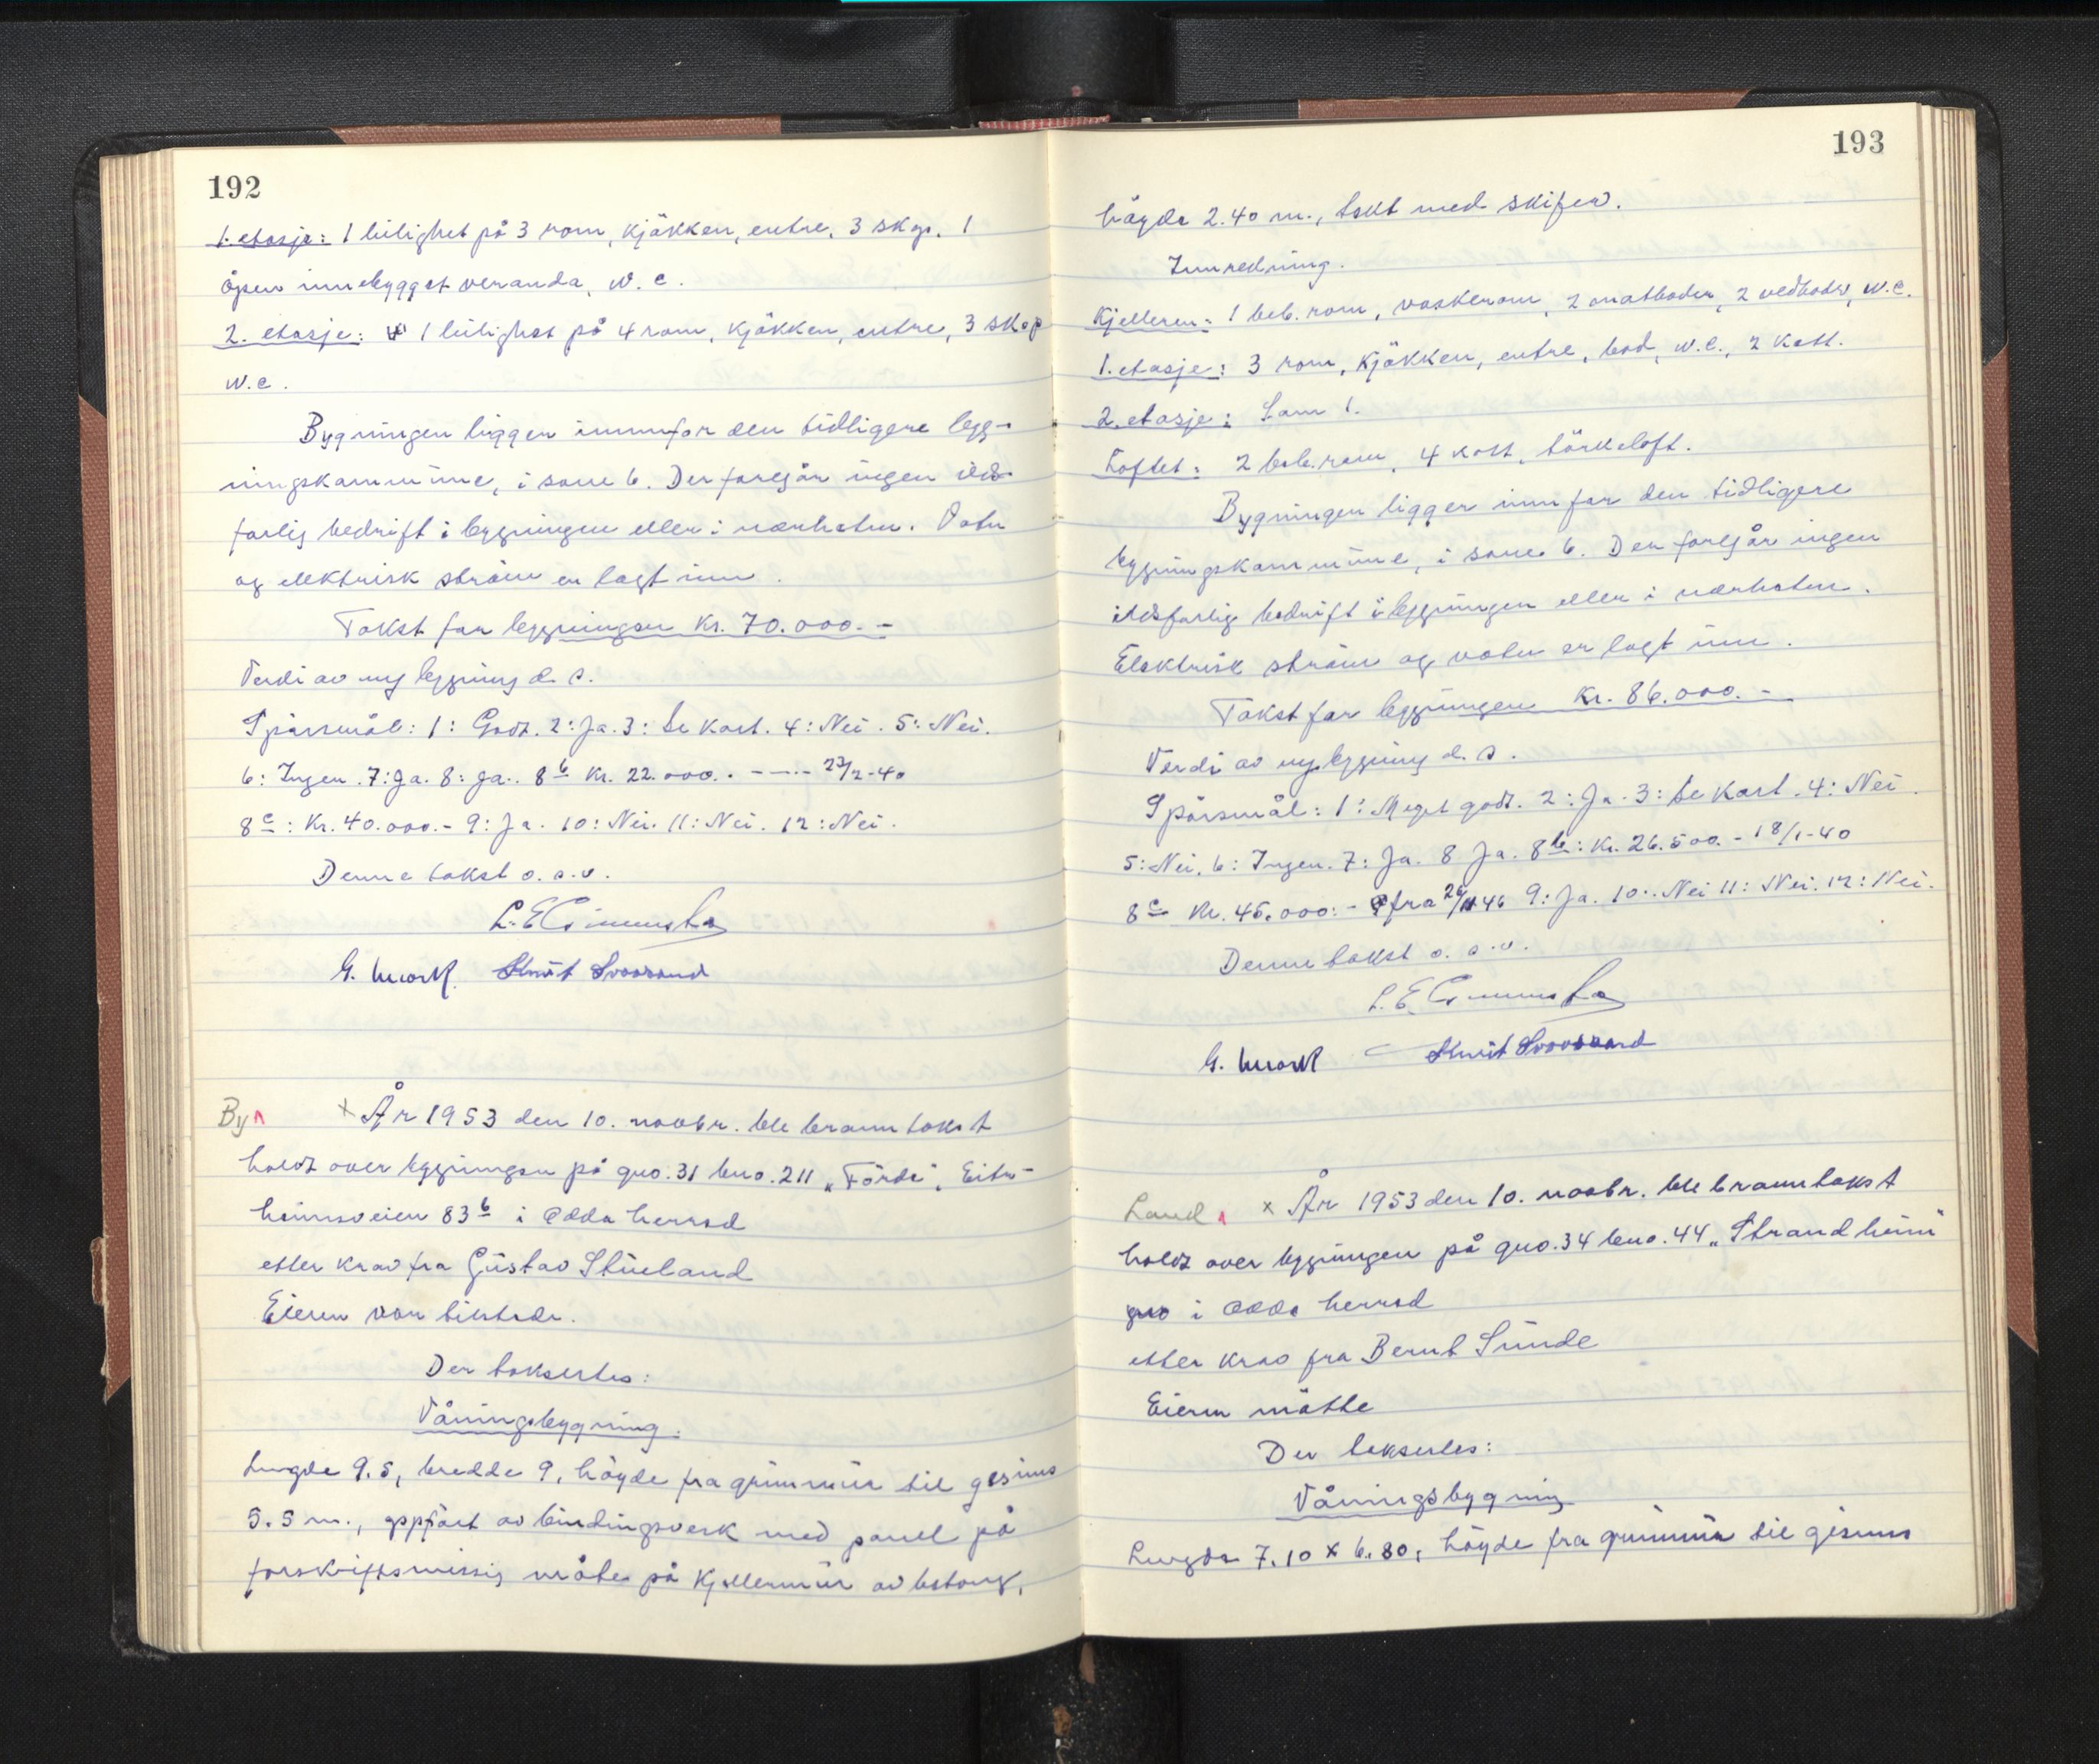 192
1. etasje: 1 leilighet på 3 rom, kjökken, entre, 3 skap, 1
åpen innebygget veranda, w.c.
2. etasje: 1 leilighet på 4 rom, kjökken, entre, 3 skap
w.c.
Bygningen ligger innenfor den tidligere bygg-
ningskommune, i sone 6. Der foregår ingen ilds-
farlig bedrift i bygningen eller i nærheten. Vatn
og elektrisk ström er lagt inn.
Takst for bygningen kr. 70.000.-
Verdi av ny bygning d. s.
Spörsmål: 1: Godt. 2: Ja. 3: Se kart. 4: Nei. 5: Nei.
6: Ingen. 7: Ja. 8: Ja. 8b kr. 22.000. - --- 23/2-40
8c: kr. 40.000.- 9: Ja. 10: Nei. 11: Nei. 12: Nei.
Denne takst o.s.v.
G. Mork. Knut
By × År 1953 den 10. novbr. ble branntakst
holdt over bygningen på gno. 31 bno. 211 „Förde", Eitr-
heimsveien 83b i Odda herred
etter krav fra Gustav Stueland
Eieren var tilstede.
Der taksertes:
Våningsbygning.
Lengde 9.5, bredde 9, höyde fra grunnmur til gesims
5.5 m., oppfört av bindingsverk med panel på
forskriftsmessig måte på kjellermur av betong,
193
höyde 2.40 m., tekt med skifer.
Innredning.
Kjelleren: 1 beb. rom, vaskerom, 2 matboder, 2 vedboder, w.c.
1. etasje: 3 rom, kjökken, entre, bod, w.c., 2 kott.
2. etasje: Som 1.
Loftet: 2 beb. rom, 4 kott, törkeloft.
Bygningen ligger innfor den tidligere
bygningskommune, i sone 6. Der foregår ingen
ildsfarlig bedrift i bygningen eller i nærheten.
Elektrisk ström og vatn er lagt inn.
Takst for bygningen kr. 86.000.-
Verdi av ny bygning d. s.
Spörsmål: 1: Meget godt. 2: Ja. 3: Se kart. 4: Nei.
5: Nei. 6: Ingen. 7: Ja. 8 Ja. 8b: kr. 26.500.- 18/1-40
8c kr. 45.000:- fra 26/11 46 9: Ja. 10: Nei 11: Nei. 12: Nei.
Denne takst o.s.v.
G. Mork Knut
Land × År 1953 den 10. novbr. ble branntakst
holdt over bygningen på gno. 34 bno. 44 „Strandheim"
gno i Odda herred
etter krav fra Bernt Sunde
Eieren mötte
Der taksertes:
Våningsbygning
Lengde 7.10 x 6.80, höyde fra grunnmur til gesims